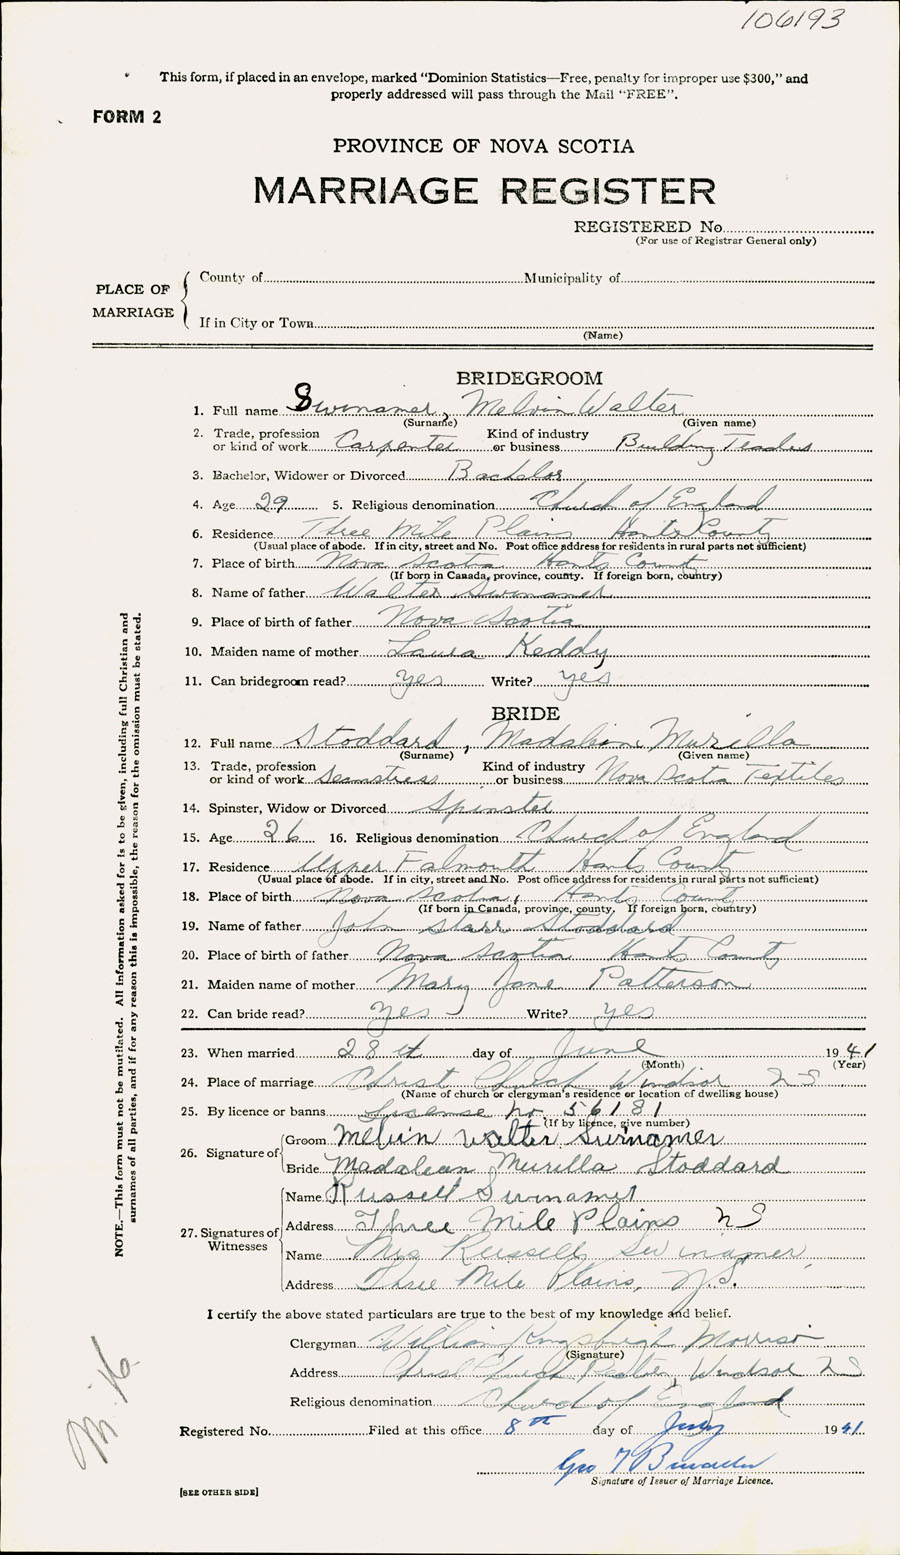 106193
This form, if placed in an envelope, marked "Dominion Statistics—Free, penalty for improper use $300," and
properly addressed will pass through the Mail "FREE".
FORM 2
PROVINCE OF NOVA SCOTIA
MARRIAGE REGISTER
REGISTERED No.
(For use of Registrar General only)
PLACE OF MARRIAGE
County of Municipality of
If in City or Town
(Name)
BRIDEGROOM
1. Full name Swinamer, Melvin Walter
(Surname) (Given name)
2. Trade, profession or kind of work Carpenter Kind of industry or business Building Trades
3. Bachelor, Widower or Divorced Bachelor
4. Age 29 5. Religious denomination Church of England
6. Residence Three Mile Plains Hants County
(Usual place of abode. If in city, street and No. Post office address for residents in rural parts not sufficient)
7. Place of birth Nova Scotia Hants County
(If born in Canada, province, county. If foreign born, country)
8. Name of father Walter Swinamer
9. Place of birth of father Nova Scotia
10. Maiden name of mother Laura Keddy
11. Can bridegroom read? yes Write? yes
BRIDE
12. Full name Stoddard, Madalean Murilla
(Surname) (Given name)
13. Trade, profession or kind of work Seamstress Kind of industry or business Nova Scotia Textiles
14. Spinster, Widow or Divorced Spinster
15. Age 26 16. Religious denomination Church of England
17. Residence Upper Falmouth Hants County
(Usual place of abode. If in city, street and No. Post office address for residents in rural parts not sufficient)
18. Place of birth Nova Scotia, Hants County
(If born in Canada, province, county. If foreign born, country)
19. Name of father John Starr Stoddard
20. Place of birth of father Nova Scotia Hants County
21. Maiden name of mother Mary Jane Patterson
22. Can bride read? yes Write? yes
23. When married 28th day of June 1941
(Month) (Year)
24. Place of marriage Christ Church Windsor NS
(Name of church or clergyman's residence or location of dwelling house)
25. By licence or banns License no. 56181
(If by licence, give number)
26. Signature of Groom Melvin Walter Swinamer
Bride Madalean Murilla Stoddard
27. Signatures of Witnesses Name Russell Swinamer
Address Three Mile Plains NS
Name Mrs Russell Swinamer,
Address Three Mile Plains, N.S.
I certify the above stated particulars are true to the best of my knowledge and belief.
Clergyman William Kingsburgh Morrison
(Signature)
Address Christ Church Rectory, Windsor NS
Religious denomination Church of England
Registered No. Filed at this office 8th day of July 1941
Geo
Signature of Issuer of Marriage Licence.
[SEE OTHER SIDE]
NOTE.—This form must not be mutilated. All information asked for is to be given, including full Christian and
surnames of all parties, and if for any reason this is impossible, the reason for the omission must be stated.